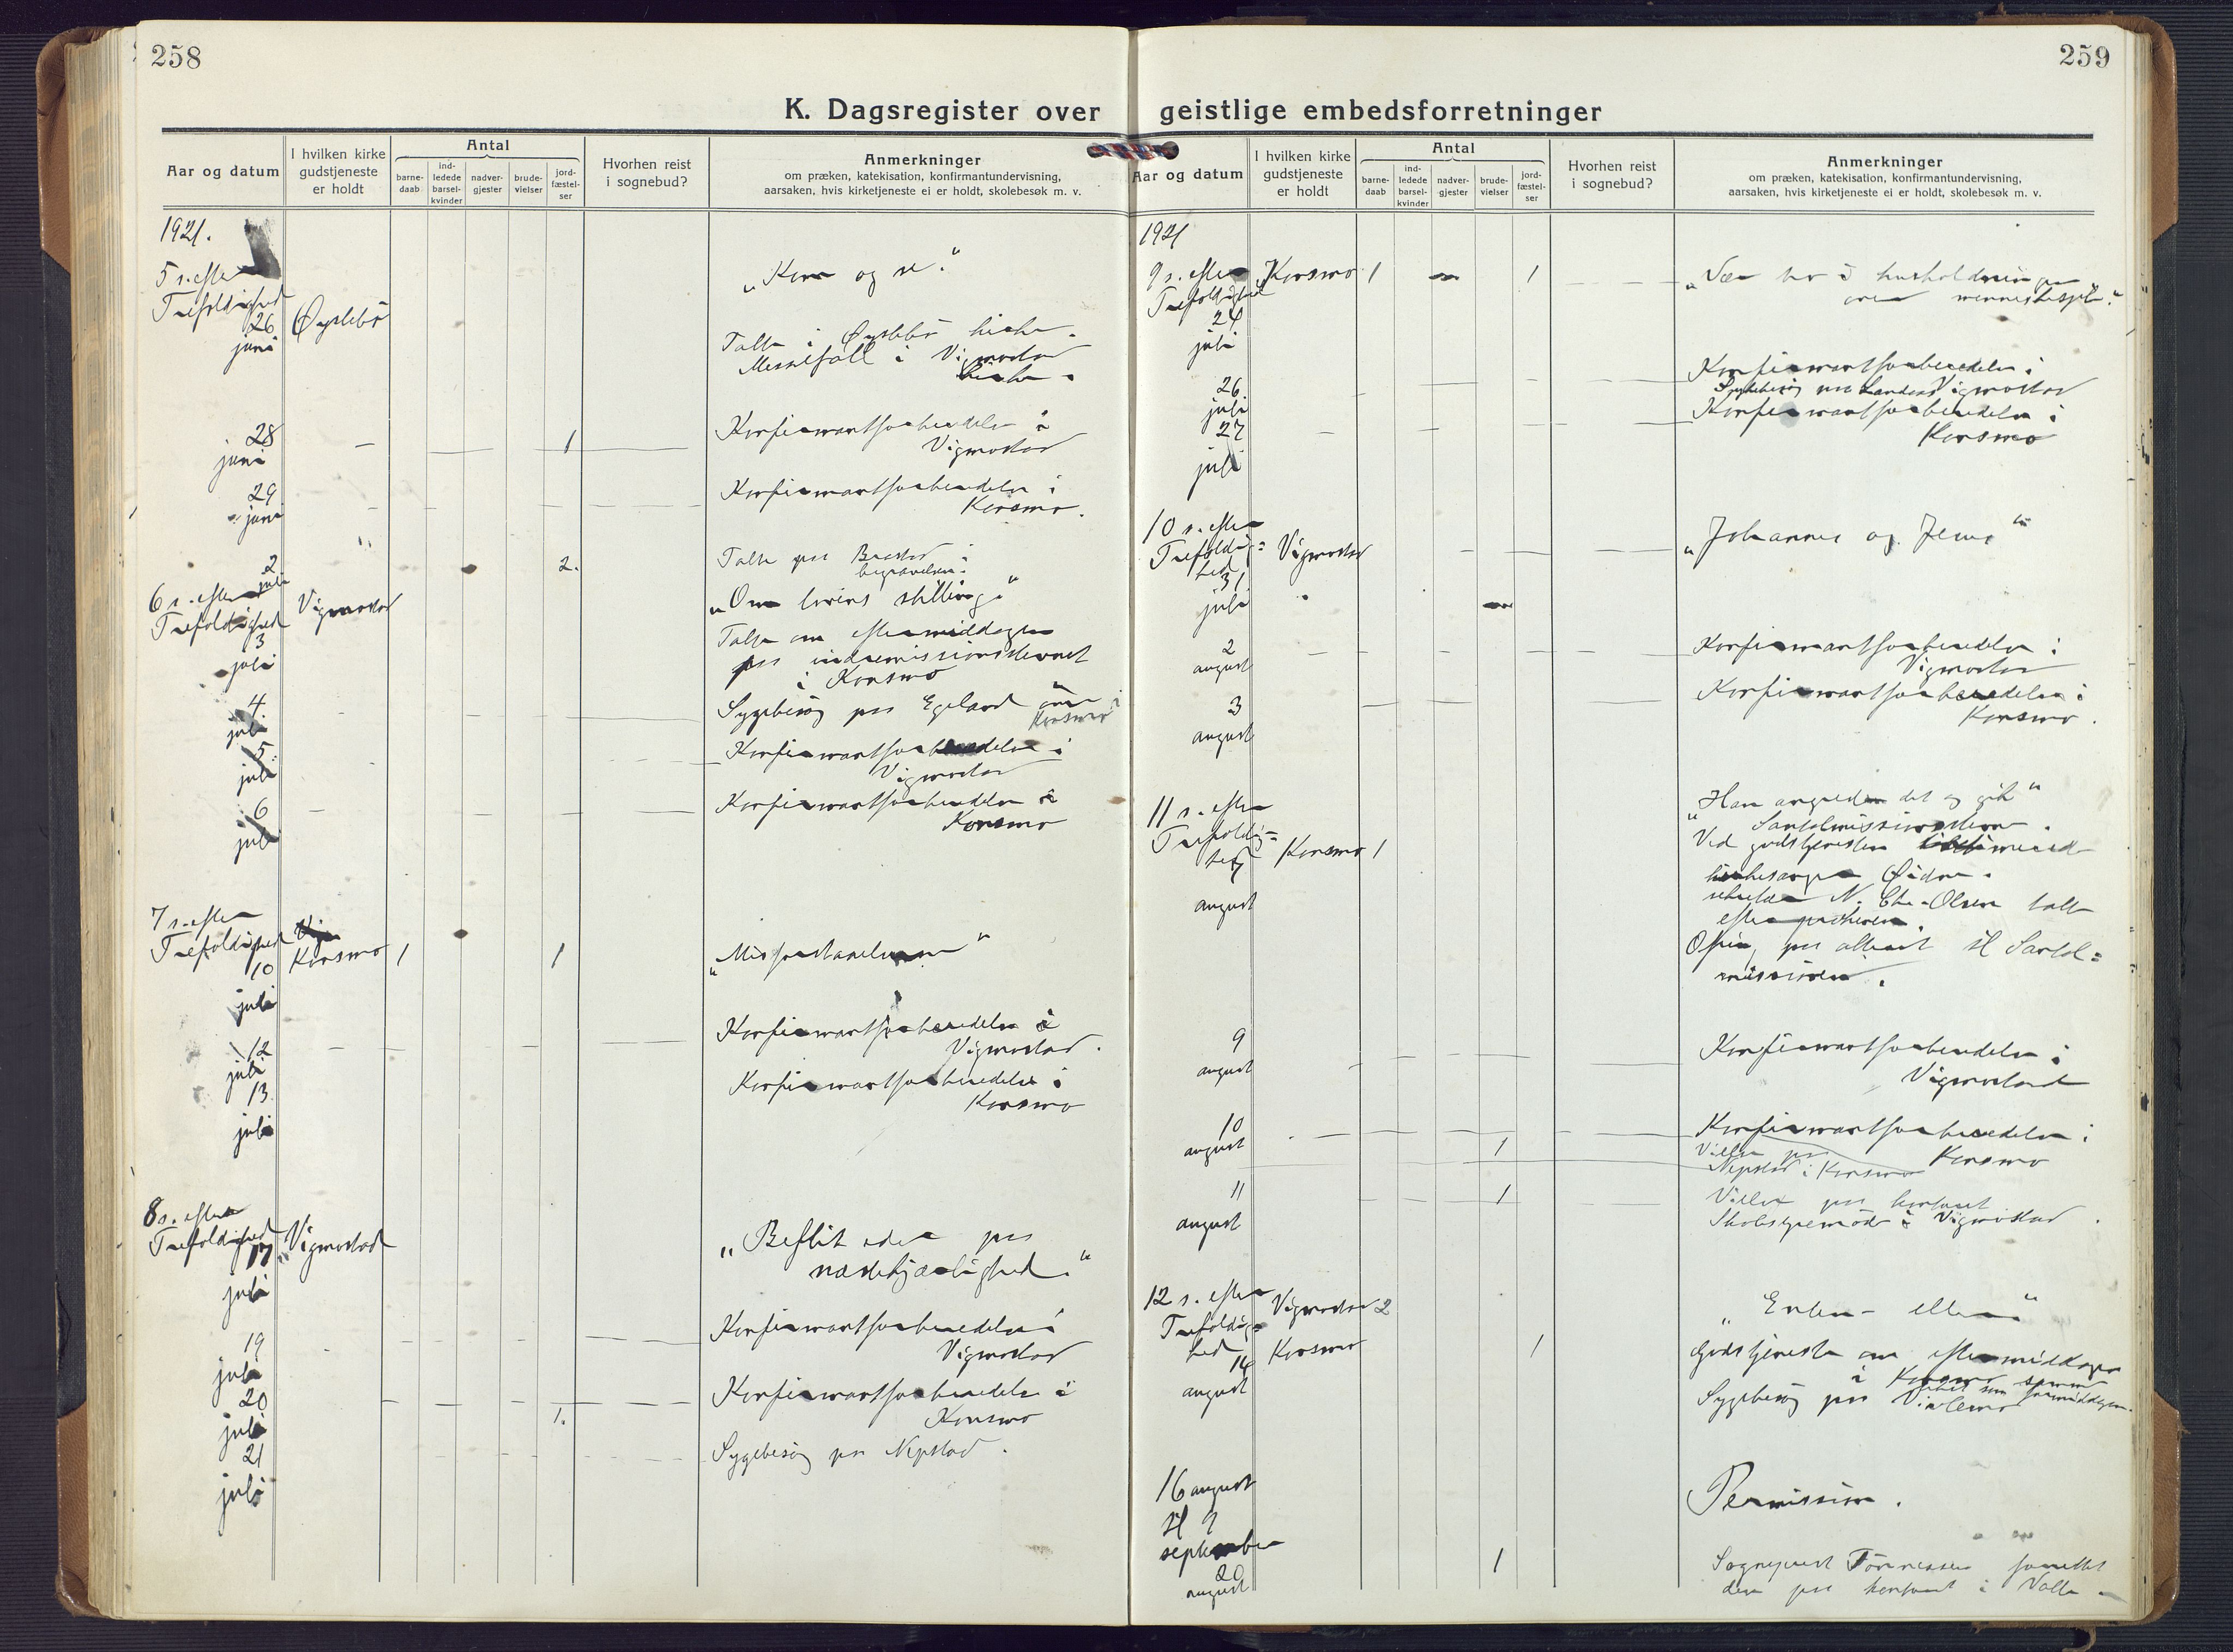 258
K. Dagsregister over
Aar og datum
I hvilken kirke
gudstjeneste
er holdt
Antal
barne-
daab
ind-
ledede
barsel-
kvinder
nadver-
gjester
brude-
vielser
jord-
fæstel-
ser
Hvorhen reist
i sognebud?
Anmerkninger
om præken, katekisation, konfirmantundervisning,
aarsaken, hvis kirketjeneste ei er holdt, skolebesøk m. v.
1921.
5 s. efter
Trefoldighed
26
juni
Øyslebø
"Kom og se."
Talte i Øyslebø kirke.
Messefall i Vigmostad
kirke.
28
juni
1
Konfirmantforberedelse i
Vigmostad
29
juni
Konfirmantforberedelse i
Konsmo.
2
juli
2.
Talte paa
begravelse.
6 s. efter
Trefoldighed
3
juli
Vigmostad
"Om livets stilling"
Talte om eftermiddagen
paa indremissionsstevnet
i Konsmo
4
juli
Sygebesøg paa Egeland
Konsmo
5
juli
Konfirmantforberedelse i
Vigmostad
6
juli
Konfirmantforberedelse i
Konsmo
7 s. efter
Trefoldighed
10
juli
Konsmo
1
1
"Misforstaaelserne"
12
juli
Konfirmantforberedelse i
Vigmostad.
13
juli
Konfirmantforberedelse i
Konsmo
8 s. efter
Trefoldighed
17
juli
Vigmostad
"Beflit eder paa
næstekjærlighed."
19
juli
Konfirmantforberedelse i
Vigmostad
20
juli
1.
Konfirmantforberedelse i
Konsmo
21
juli
Sygebesøg paa Nepstad.
259
geistlige embedsforretninger
Aar og datum
I hvilken kirke
gudstjeneste
er holdt
Antal
barne-
daab
ind-
ledede
barsel-
kvinder
nadver-
gjester
brude-
vielser
jord-
fæstel-
ser
Hvorhen reist
i sognebud?
Anmerkninger
om præken, katekisation, konfirmantundervisning,
aarsaken, hvis kirketjeneste ei er holdt, skolebesøk m. v.
1921
9 s. efter
Trefoldighed
24
juli
Konsmo
1
1
"Vær tro i husholdningen
over menneskesjæle."
26
juli
Konfirmantforberedelse i
Sygebesøg paa Vigmostad
27
juli
Konfirmantforberedelse i
Konsmo
10 s. efter
Trefoldig=
hed
31
juli
Vigmostad
"Johannes og Jesus"
2
august
Konfirmantforberedelse i
Vigmostad
3
august
Konfirmantforberedelse i
Konsmo.
11 s. efter
Trefoldig=
hed
7
august
Konsmo
1
"Han angrede det og gik"
Santalmissionsstevne.
Ved gudstjenesten
kirkesanger Øidne.
sekretær N. Chr. Olsen talte
efter prækenen.
Ofring paa alteret til Santal=
missionen.
9
august
Konfirmantforberedelse i
Vigmostad
10
august
1
Konfirmantforberedelse i
Konsmo
Vielse paa
Nepstad i Konsmo
11
august
1
Vielse paa kontoret
Skolestyremøde i Vigmostad.
12 s. efter
Trefoldig=
hed
14
august
Vigmostad
2
Konsmo
1
"Enten - eller"
Gudstjeneste om eftermiddagen
i Konsmo samme
som formiddagen.
Sygebesøg paa
16 august
til 9
september
Permission.
20
august
1
Sogneprest Tønnessen forrettet
den paa kontoret i Valle.